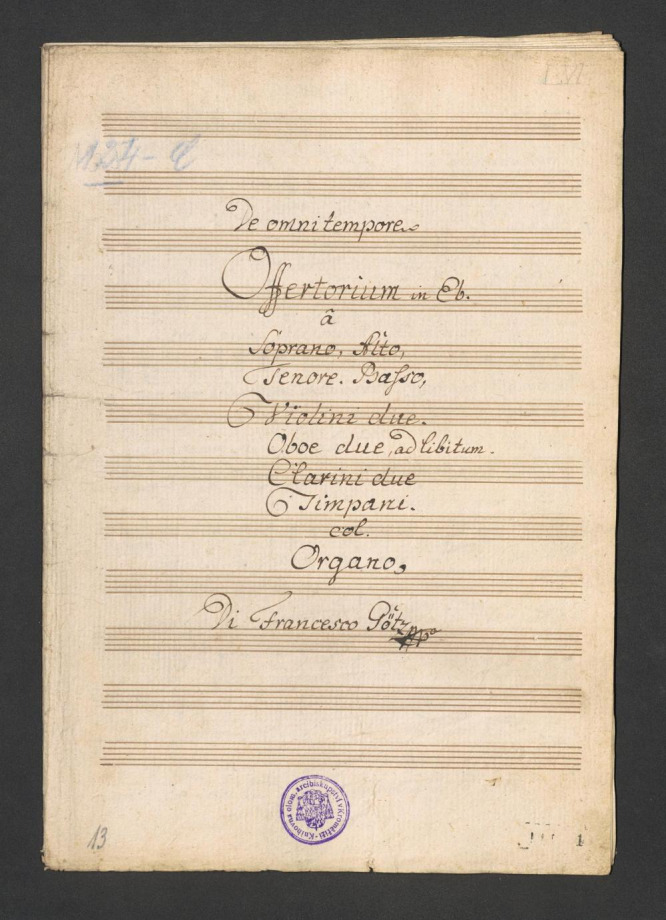 De omni tempore.
Offertorium in Eb.
â
Soprano, Alto,
Tenore. Basso,
Violini due.
Oboe due, ad libitum.
Clarini due
Timpani.
col.
Organo,
Di Francesco Götz
Knihovna olom. arcibiskupství v Kroměříži
13
1